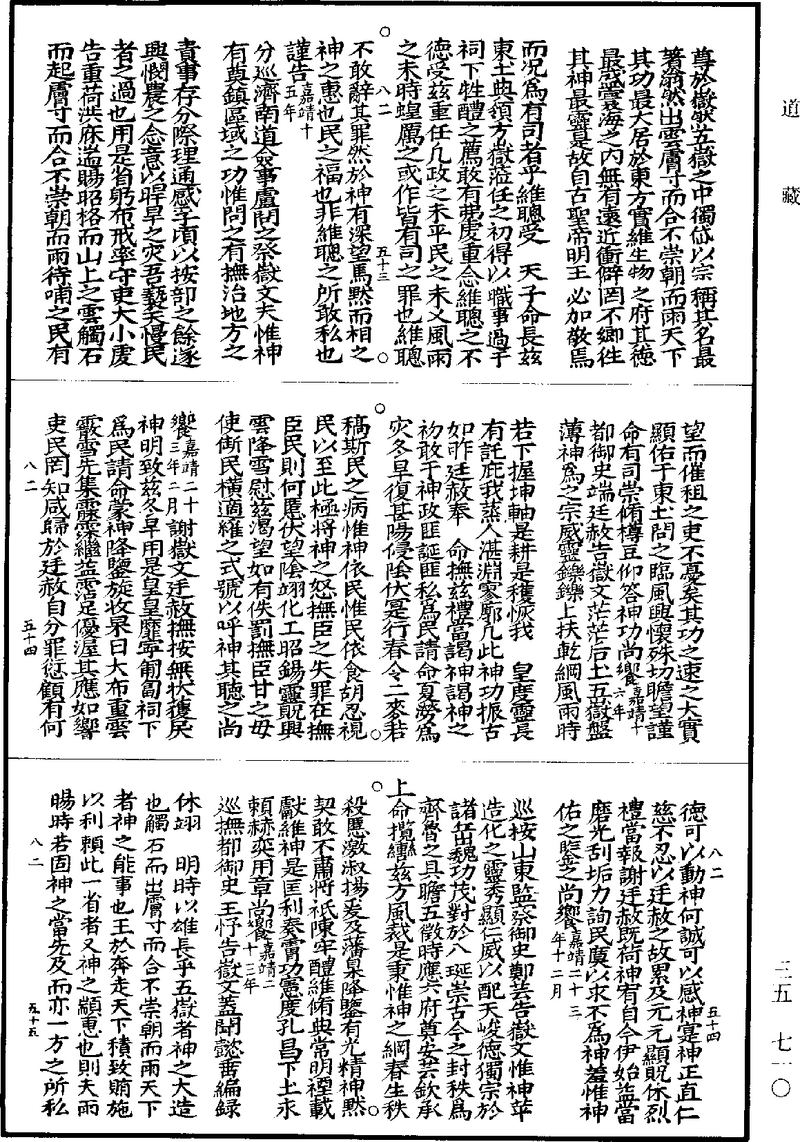 道藏
尊於嶽然五嶽之中獨岱以宗稱其名最
著滃然出雲膚寸而合不崇朝而雨天下
其功最大居於東方實維生物之府其德
最盛寰海之內無有遠近衝僻罔不鄉往
其神最靈是故自古聖帝明王必加敬焉
而況為有司者乎維聰受 天子命長茲
東土典領方嶽蒞任之初得以職事過于
祠下牲醴之薦敢有弗虔重念維聰之不
德受茲重任凡政之未平民之未乂風雨
之未時蝗厲之或作皆有司之罪也維聰
八二
五十三
不敢辭其罪然於神有深望焉默而相之
神之惠也民之福也非維聰之所敢私也
謹告嘉靖十五年
分巡濟南道僉事盧問之祭嶽文夫惟神
有奠鎮區域之功惟問之有撫治地方之
責事存分際理通感孚頃以按部之餘遂
興憫農之念意以暵旱之災吾藝失慢民
者之過也用是省躬布戒率守吏大小虔
告重荷洪庥遄賜昭格而山上之雲觸石
而起膚寸而合不崇朝而雨待哺之民有
望而催租之吏不憂矣其功之速之大實
顯佑于東土問之臨風興懷殊切瞻望謹
命有司崇脩樽豆仰答神功尚饗嘉靖十六年
都御史端廷赦告嶽文茫茫后土五嶽盤
薄神為之宗威靈鑠鑠上扶乾綱風雨時
若下握坤軸是耕是穫恢我 皇度靈長
有託庇我蒸人湛淵寥廓凡此神功振古
如昨廷赦奉 命撫茲禮當謁神謁神之
初敢干神政匪誕匪私為民請命夏澇為
災冬旱復甚陽侵陰伏冥行春令二麥若
稿斯民之病惟神依民惟民依食胡忍視
民以至此極將神之怒撫臣之失罪在撫
臣民則何慝伏望陰翊化工昭錫靈貺興
雲降雪慰茲渴望如有佚罰撫臣甘之毋
使衙民橫適罹之式號以呼神其聽之尚
饗嘉靖二十三年二月謝嶽文廷赦撫按無狀獲戾
神明致茲冬旱用是皇皇靡寧匍匐祠下
為民請命蒙神降鑒旋收杲日大布重雲
霰雪先集霡霂繼益霑足優渥其應如響
吏民罔知咸歸於廷赦自分罪愆顧有何
八二
五十四
德可以動神何誠可以感神寔神正直仁
慈不忍以廷赦之故累及元元顯貺休烈
禮當報謝廷赦既荷神宥自今伊始益當
磨光刮垢力詢民瘼以求不為神羞惟神
佑之鑒之尚饗嘉靖二十三年十二月
八二
五十四
巡按山東監察御史鄭芸告嶽文惟神萃
造化之靈秀顯仁威以配天峻德獨宗於
諸岳巍功茂對於八埏崇古今之封秩為
齊魯之具瞻五徵時應六府尊安芸欽承
上命攬轡茲方風裁是秉惟神之綱春生秋
殺慝激淑揚爰及藩臬降鑒有光精神默
契敢不肅將祇陳牢醴維脩典常明禋載
獻維神是匡利秦霄功憲度孔昌下土永
賴赫奕用章尚饗嘉靖二十三年
巡撫都御史王忬告嶽文蓋聞懿冊編錄
休翊 明時以雄長乎五嶽者神之大造
也觸石而出膚寸而合不崇朝而雨天下
者神之能事也王於奔走天下積致賄施
以利賴此一省者又神之顓惠也則夫雨
暘時若固神之當先及而亦一方之所私
八二
五十五
三五 七一〇